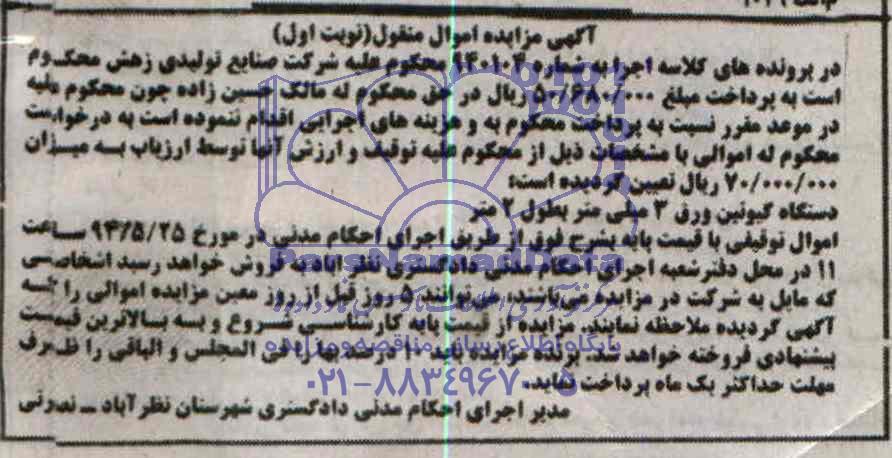 آگهی مزایده اموال منقول(نوبت اول)
در پرونده های کلاسه اجرا به شماره ۱۴۰۱۰۳ محکوم علیه شرکت صنایع تولیدی زهش محکوم
است به پرداخت مبلغ ۵۰/۶۸۰/۰۰۰ ریال در حق محکوم له مالک حسین زاده چون محکوم علیه
در موعد مقرر نسبت به پرداخت محکوم به و هزینه های اجرایی اقدام ننموده است به درخواست
محکوم له اموالی با مشخصات ذیل از محکوم علیه توقیف و ارزش آنها توسط ارزیاب به میزان
۷۰/۰۰۰/۰۰۰ ریال تعیین گردیده است:
دستگاه گیوتین ورق ۳ میلی متر بطول ۲ متر
اموال توقیفی با قیمت پایه بشرح فوق از طریق اجرای احکام مدنی در مورخ ۹۴/۵/۲۵ ساعت
۱۱ در محل دفتر شعبه اجرای احکام مدنی دادگستری نظر آباد به فروش خواهد رسید اشخاصی
که مایل به شرکت در مزایده می‌باشند، می‌توانند ۵ روز قبل از روز معین مزایده اموالی را که
آگهی گردیده ملاحظه نمایند. مزایده از قیمت پایه کارشناسی شروع و به بالاترین قیمت
پیشنهادی فروخته خواهد شد. برنده مزایده باید ۱۰ درصد بها را فی المجلس و الباقی را ظرف
مهلت حداکثر یک ماه پرداخت نماید.
مدیر اجرای احکام مدنی دادگستری شهرستان نظرآباد ــ نصرتی
ParsNamadData
پایگاه اطلاع رسانی مناقصه و مزایده
۰۲۱-۸۸۳۴۹۶۷۰-۵